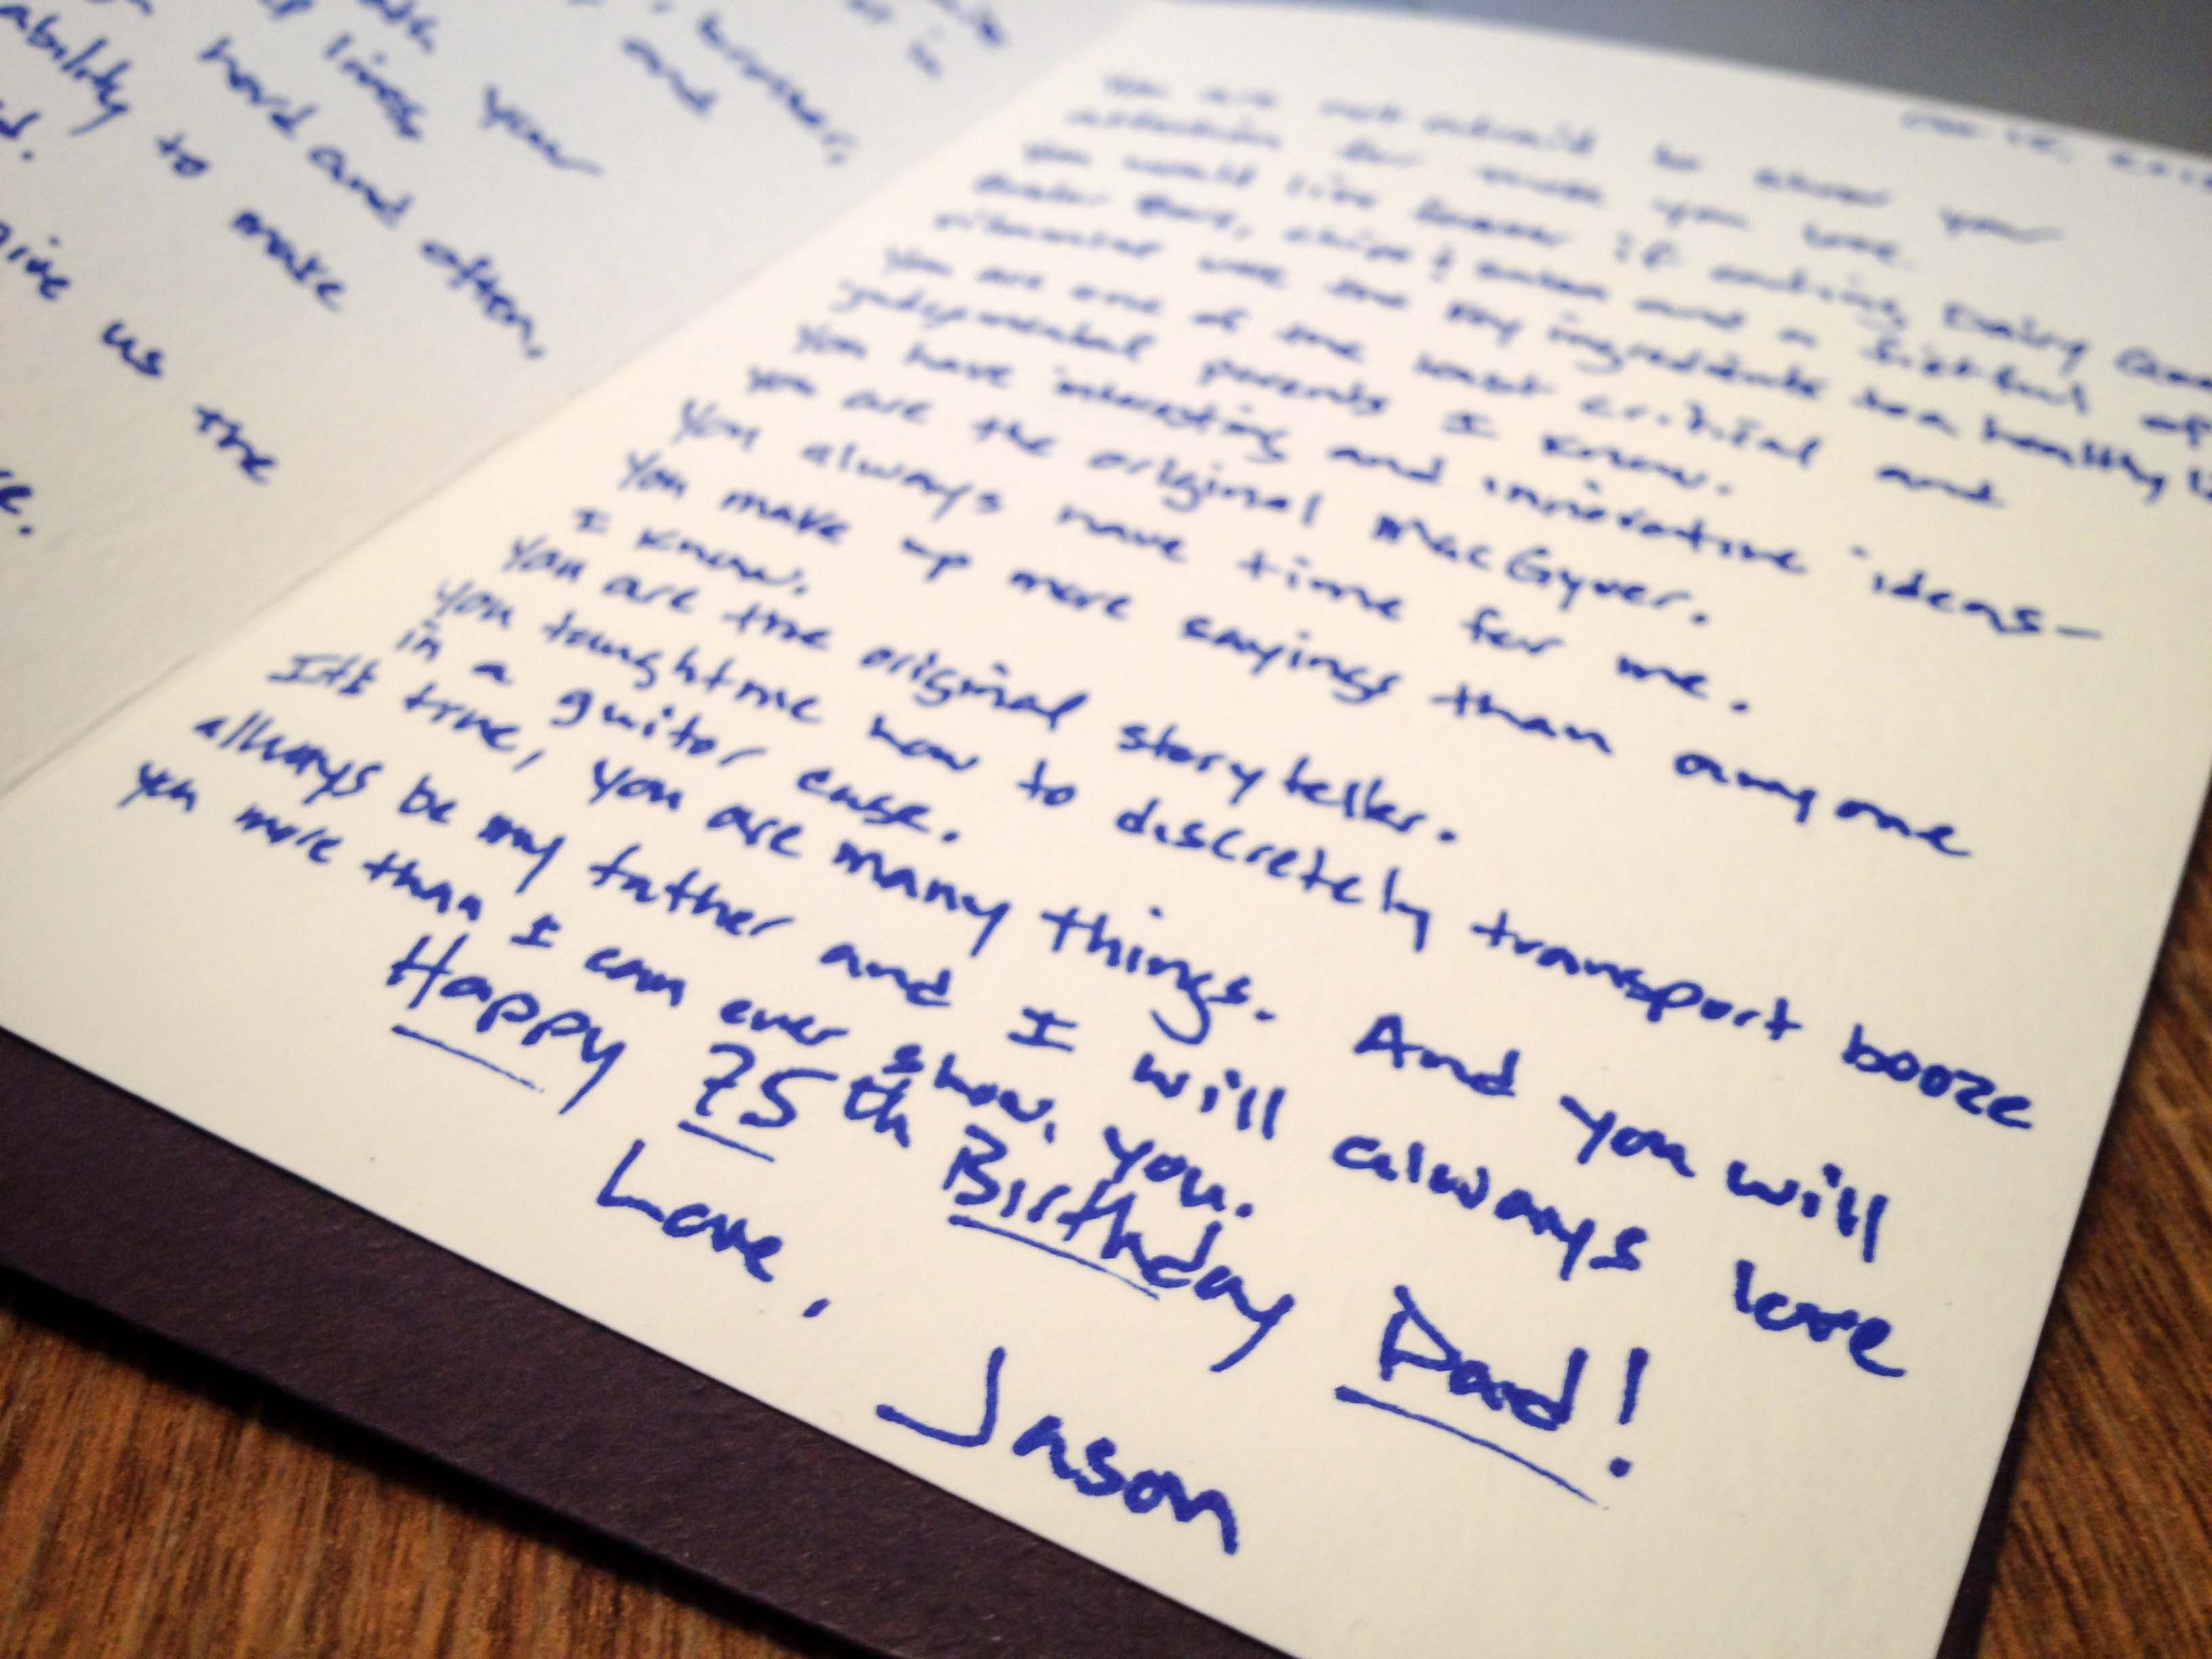 ability to make
hard and often,
lives you
and
give us the
You are not afraid to show your
for those you love.
You would live forever if eating Dairy
chips & and a fistful of
were the key ingredients to a healthy
You are one of the least critical and
judgmental parents I know.
You have interesting and innovative ideas—
you are the original MacGyver.
You always have time for me.
You make up more sayings than anyone
I know.
You are the original story teller.
You taught me how to discretely transport booze
in a guitar case.
It's true, you are many things. And you will
always be my father and I will always love
you more than I can ever show you.
Happy 75th Birthday Dad!
Love,
Jason